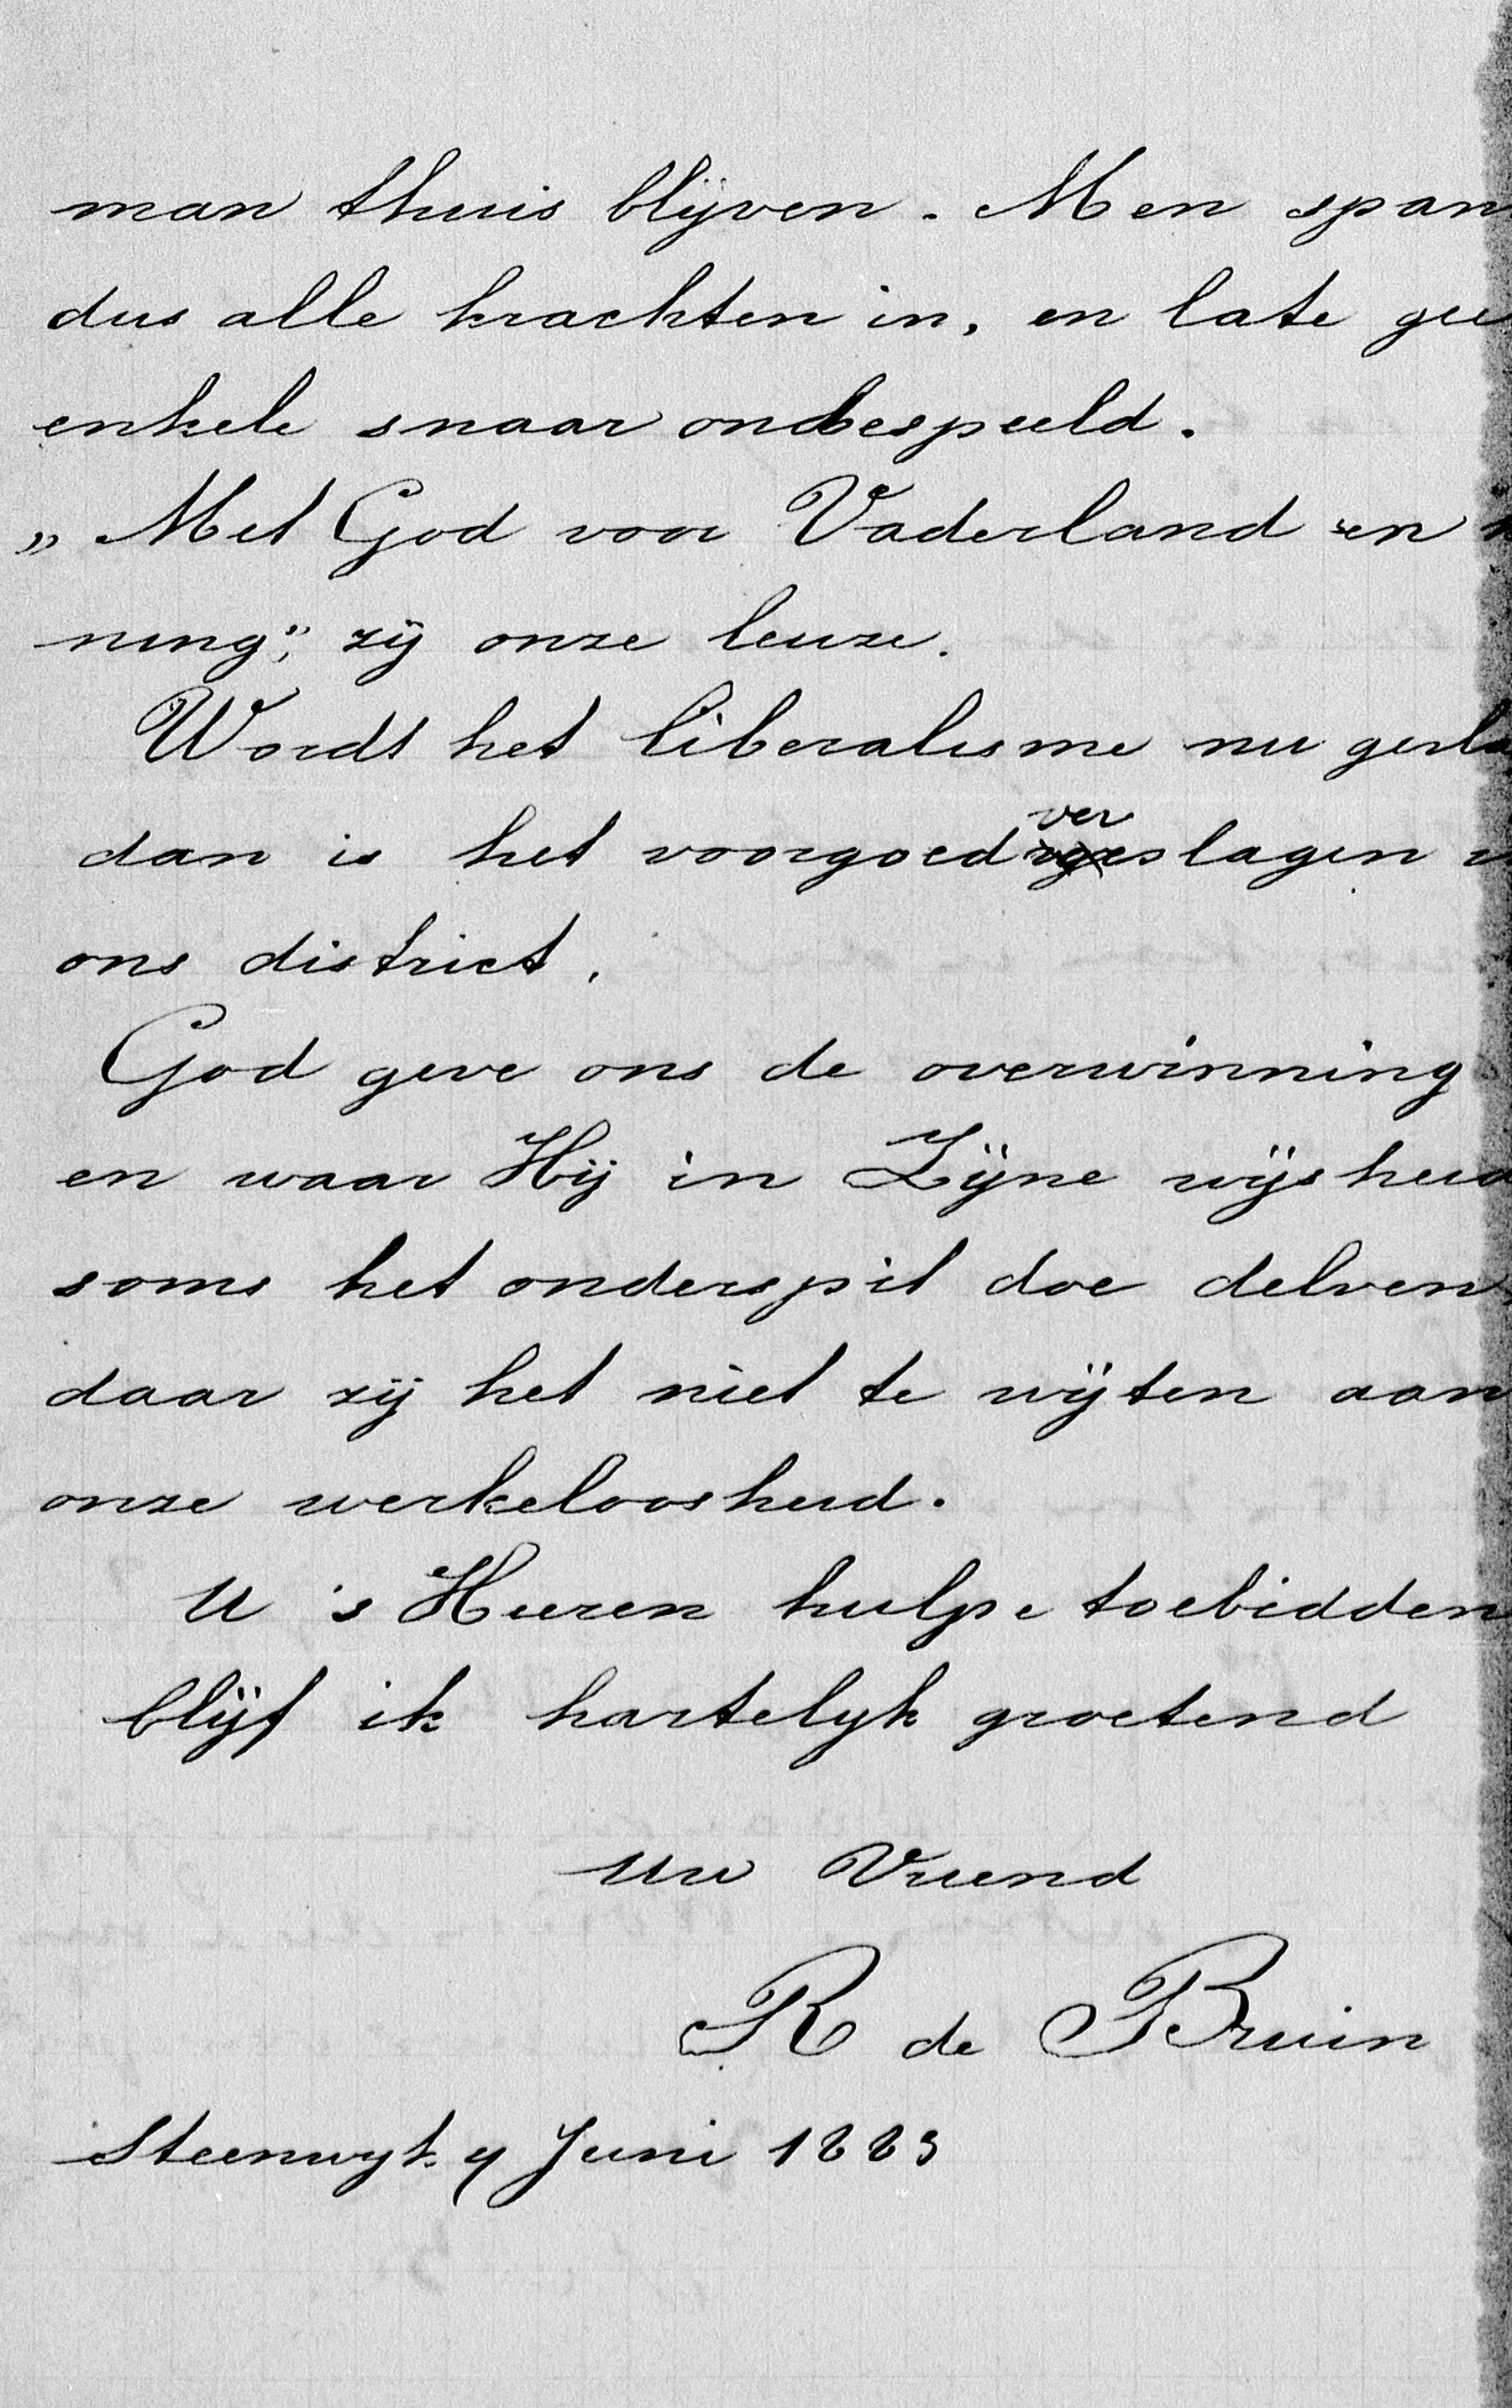 man thuis blijven. Men span
dus alle krachten in, en late gee
enkele snaar onbespeeld.
„Met God voor Vaderland en
ning”, zij onze leuze.
Wordt het liberalisme nu gesla
dan is het voorgoed verslagen
ons district.
God geve ons de overwinning
en waar Hij in Zijne wijsheid
soms het onderspit doe delven
daar zij het niet te wijten aan
onze werkeloosheid.
U 's Heeren hulpe toebidden
blijf ik hartelijk groetend
Uw Vriend
R de Bruin
Steenwijk. 9 Juni 1885